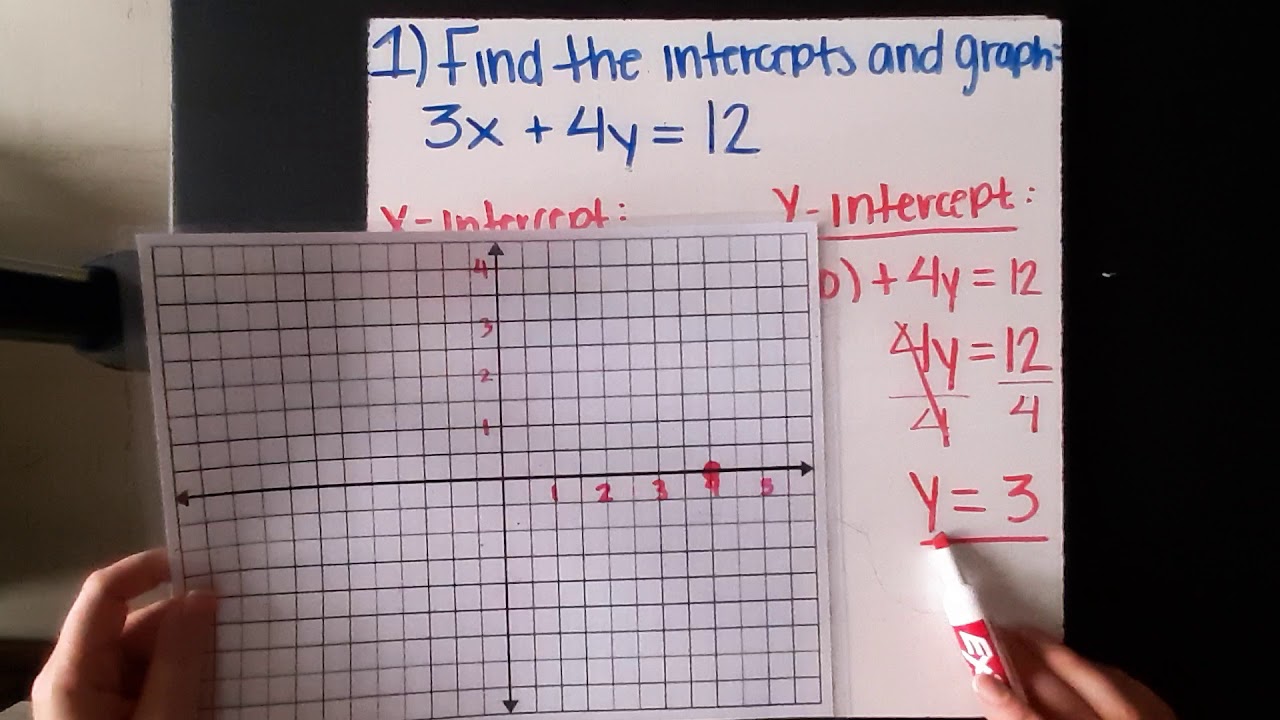 1) Find the intercepts and graph:
3x + 4y = 12
X-intercept:
Y-intercept:
0) + 4y = 12
4y = 12
4 4
y = 3
4
3
2
1
1 2 3 4 5
EX